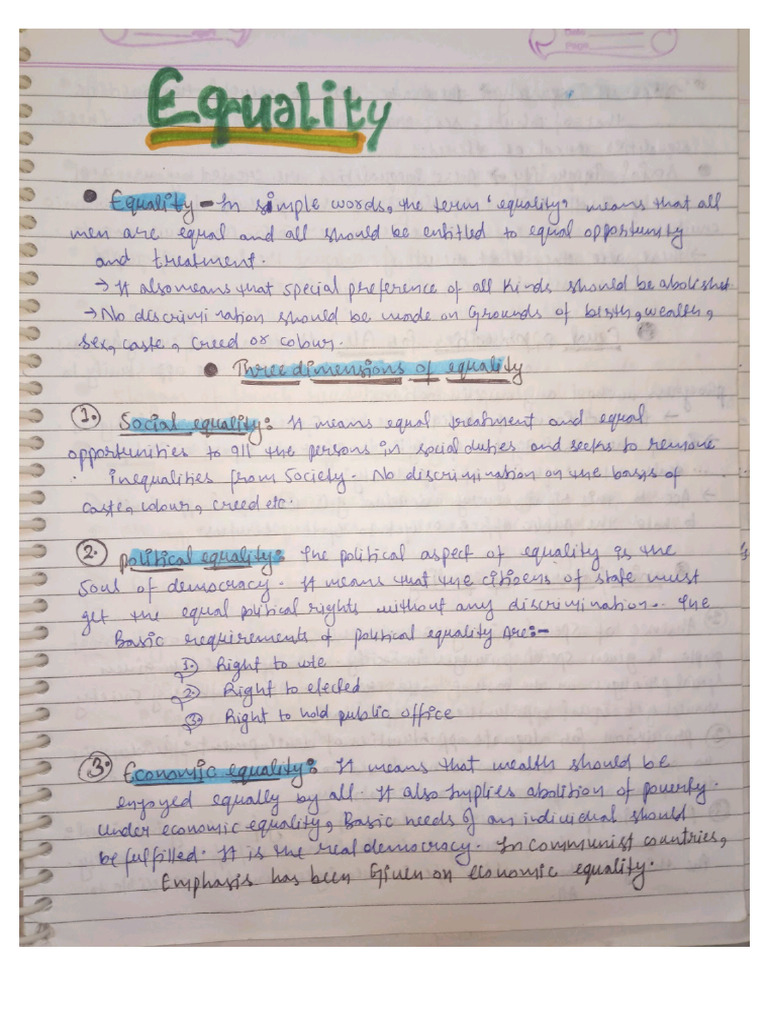 Equality
• Equality - In simple words, the term 'equality' means that all
men are equal and all should be entitled to equal opportunity
and treatment.
→ It also means that special preference of all kinds should be abolished
→ No discrimination should be made on Grounds of birth, wealth,
sex, caste, creed or colour.
• Three dimensions of equality
1. Social equality: It means equal treatment and equal
opportunities to all the persons in social duties and seeks to remove
inequalities from Society. No discrimination on the basis of
caste, colour, creed etc.
2. political equality: The political aspect of equality is the
Soul of democracy. It means that the citizens of state must
get the equal political rights without any discrimination. The
Basic requirements of political equality are:-
1. Right to vote
2. Right to elected
3. Right to hold public office
3. Economic equality: It means that wealth should be
enjoyed equally by all. It also implies abolition of poverty.
Under economic equality, Basic needs of an individual should
be fulfilled. It is the real democracy. In communist countries,
Emphasis has been Given on economic equality.